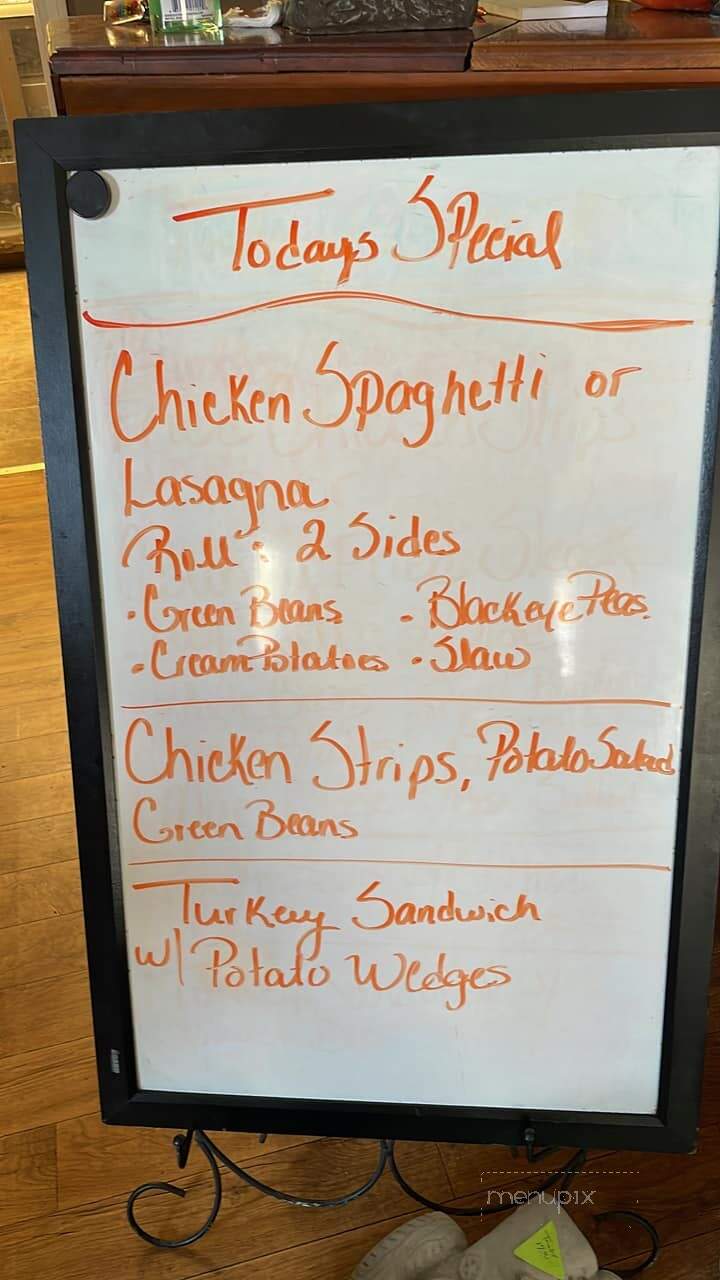 Todays Special
Chicken Spaghetti or
Lasagna
Roll : 2 Sides
• Green Beans • Blackeye Peas
• Cream Potatoes • Slaw
Chicken Strips, Potato Salad
Green Beans
Turkey Sandwich
w/ Potato Wedges
menupix